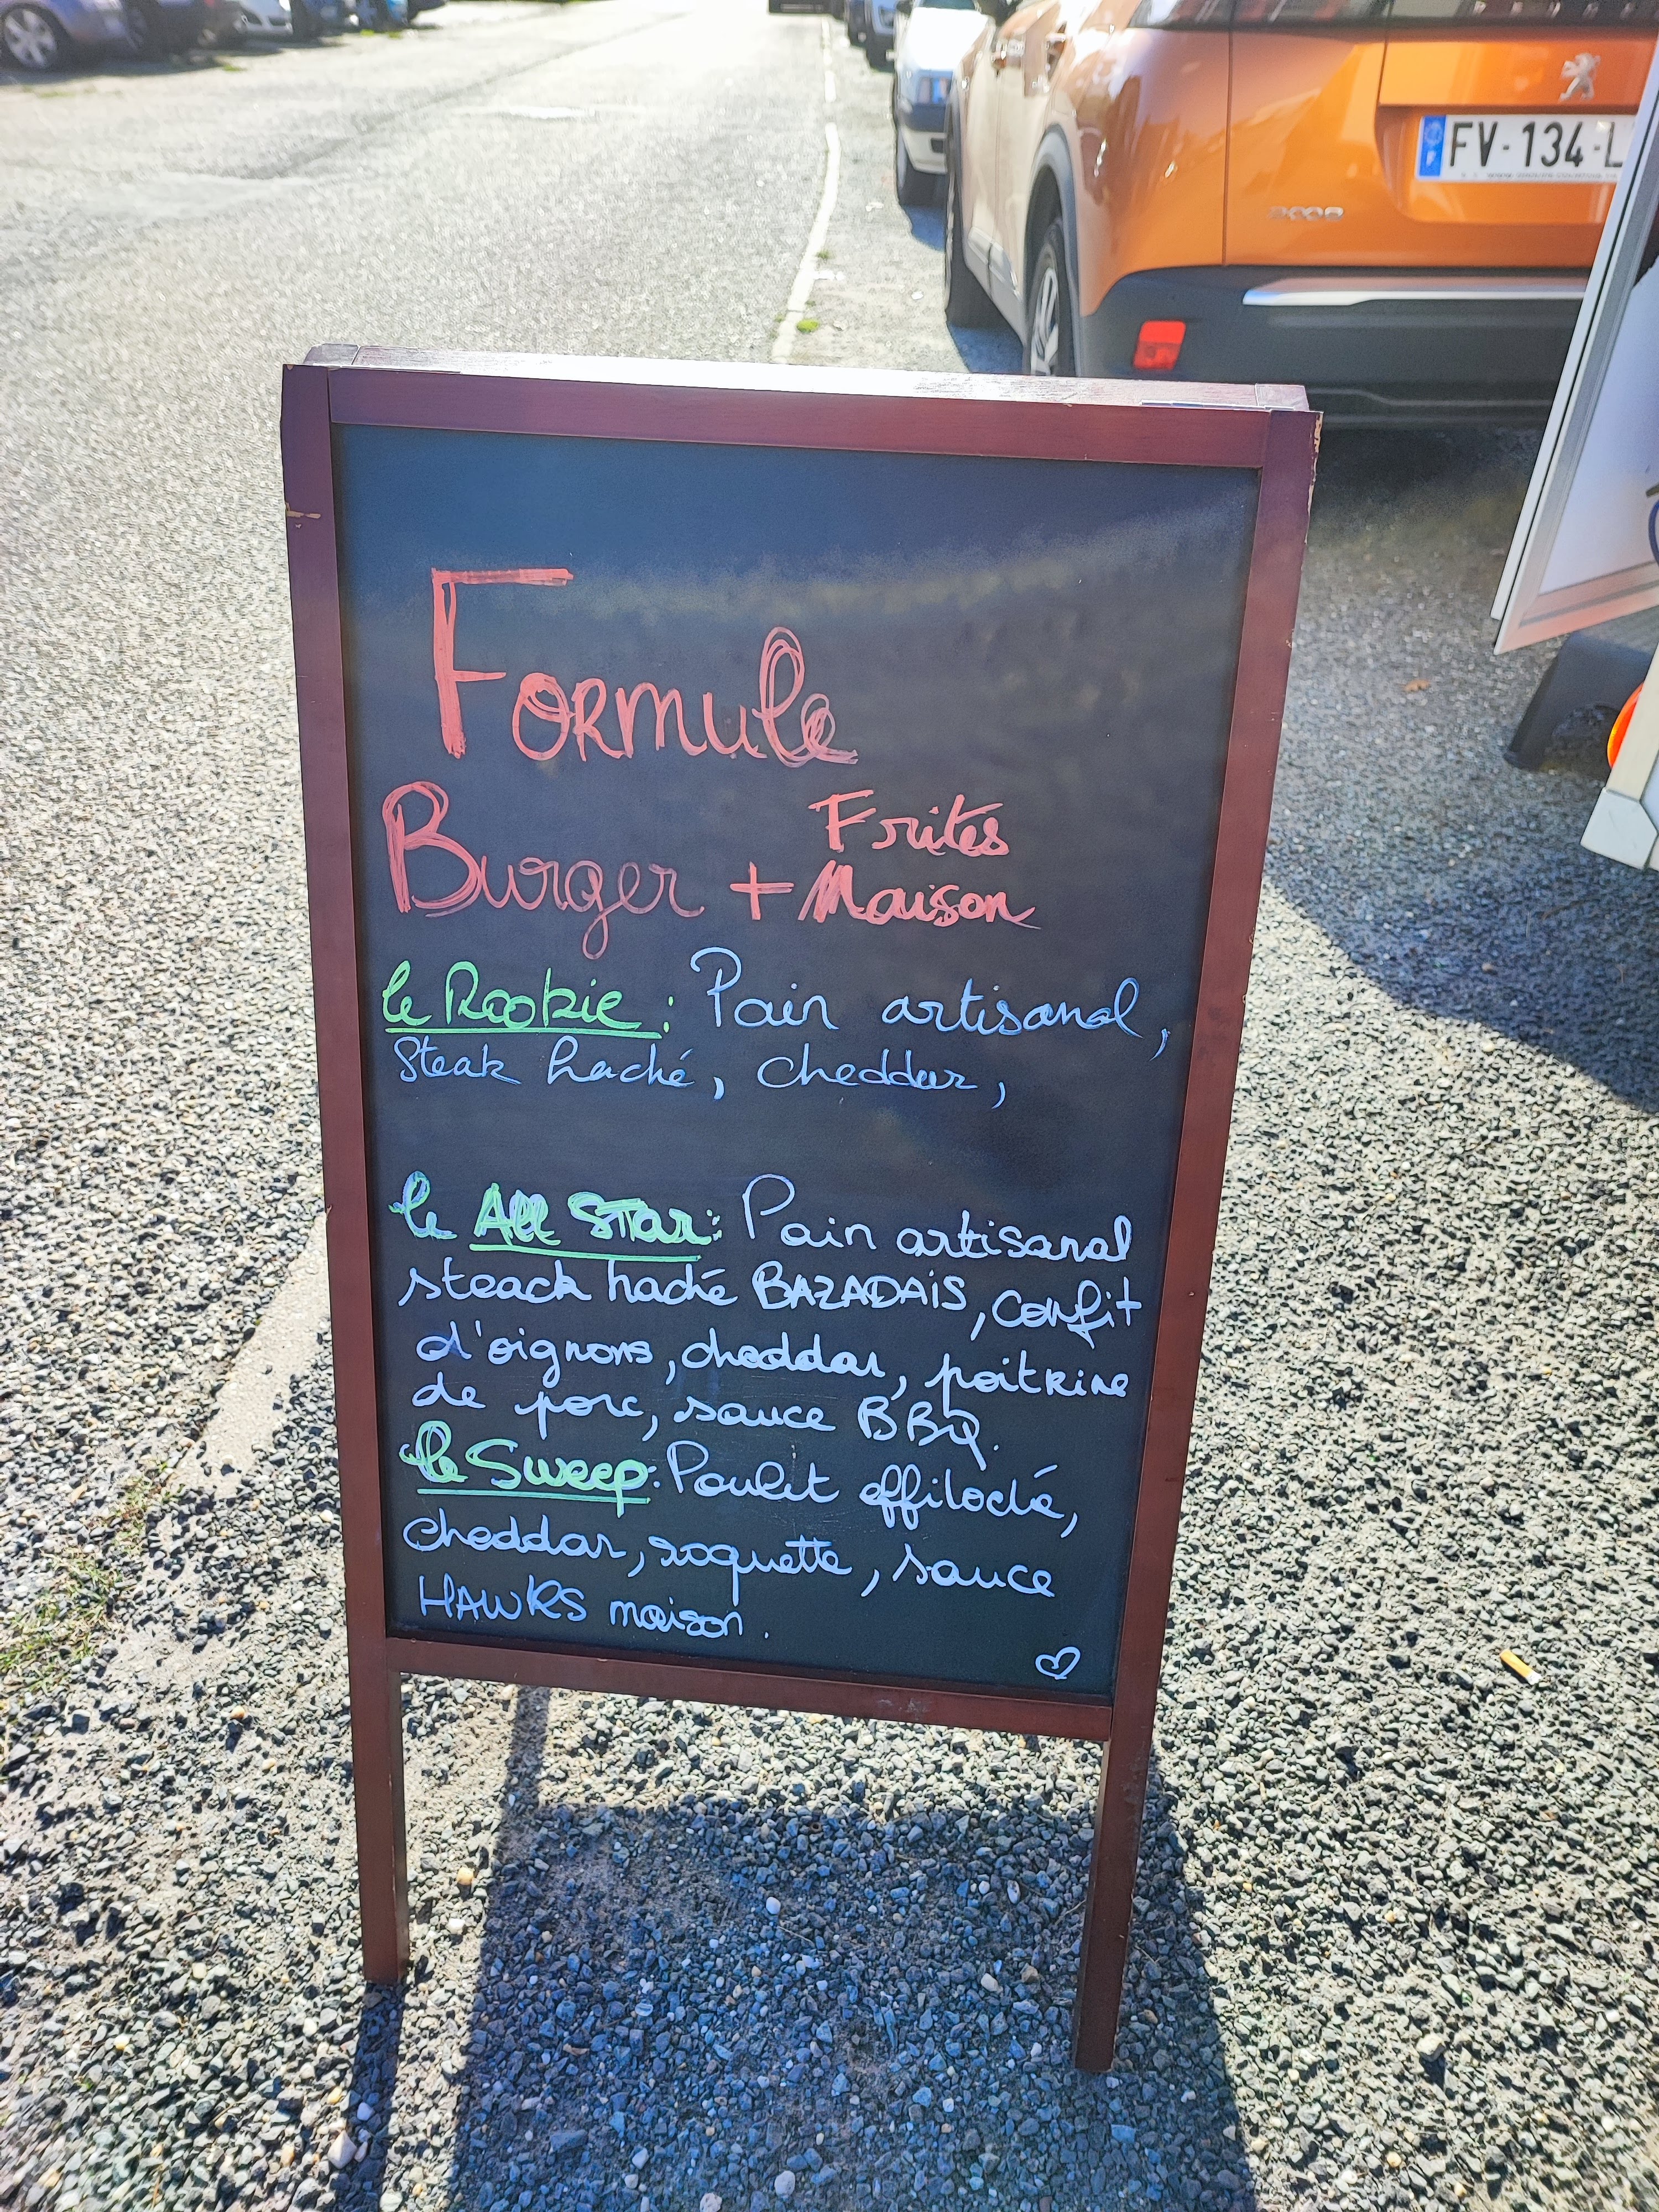 FV-134-L
2008
Formule
Burger + Frites Maison
le Rookie : Pain artisanal,
Steak haché, cheddar,
le All Star : Pain artisanal
steack haché BAZADAIS, confit
d'oignons, cheddar, poitrine
de porc, sauce BBQ.
le Sweep : Poulet effiloché,
cheddar, roquette, sauce
HAWKS maison.